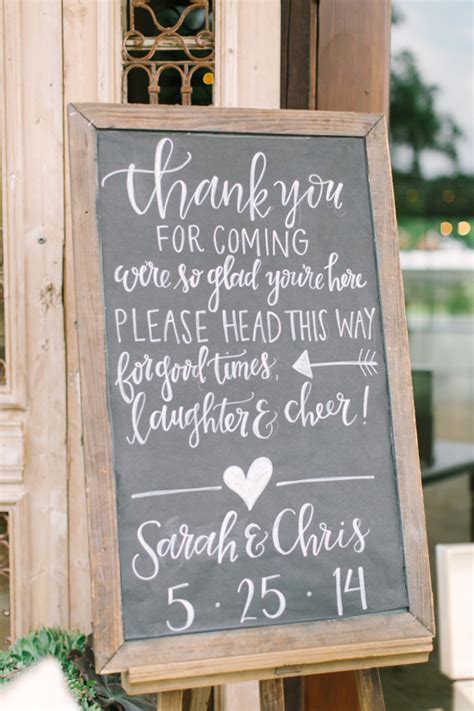 thank you
FOR COMING
we're so glad you're here
PLEASE HEAD THIS WAY
for good times,
laughter & cheer!
Sarah & Chris
5 · 25 · 14